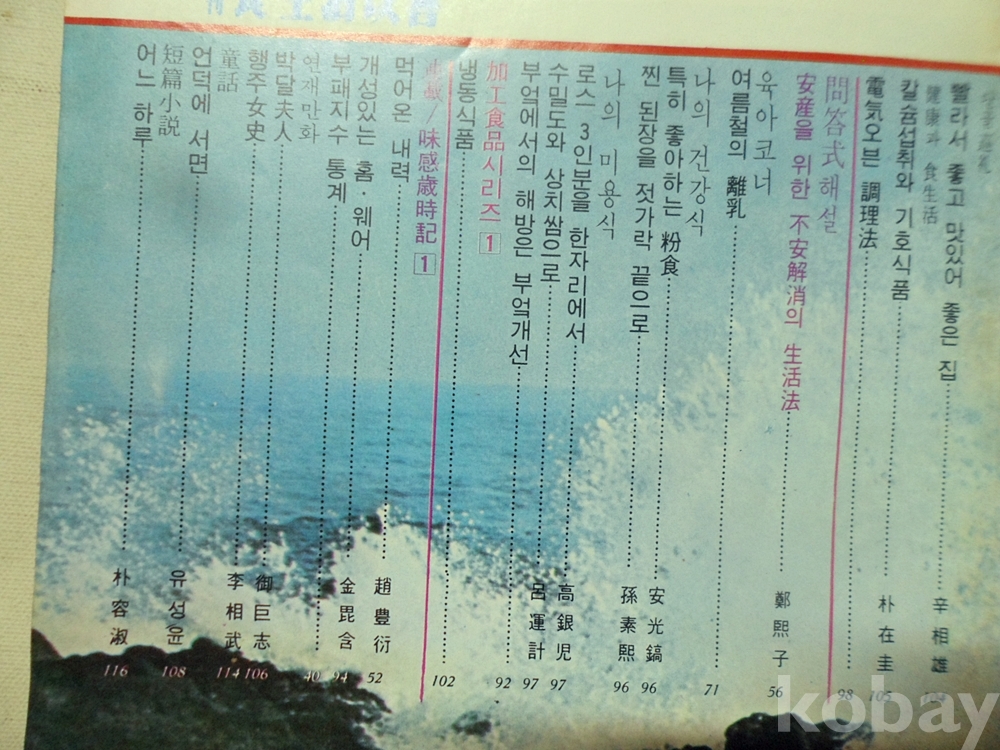 빨라서 좋고 맛있어 좋은 집 辛相雄
健康과 食生活
칼슘섭취와 기호식품 朴在圭 105
電気오븐 調理法 98
問答式해설
安産을 위한 不安解消의 生活法 鄭熙子 56
육아코너
여름철의 離乳 71
나의 건강식
특히 좋아하는 粉食 安光鎬 96
찐 된장을 젓가락 끝으로 孫素熙 96
나의 미용식
로스 3인분을 한자리에서 高銀児 97
수밀도와 상치쌈으로 呂運計 97
부엌에서의 해방은 부엌개선 92
加工食品시리즈 1
냉동식품 102
連載/味感歳時記 1
먹어온 내력 趙豊衍 52
개성있는 홈·웨어 金毘含 94
부패지수 통계 40
연재만화
박달夫人 御巨志 106
행주女史 李相武 114
童話
언덕에 서면 유성윤 108
短篇小説
어느 하루 朴容淑 116
kobay